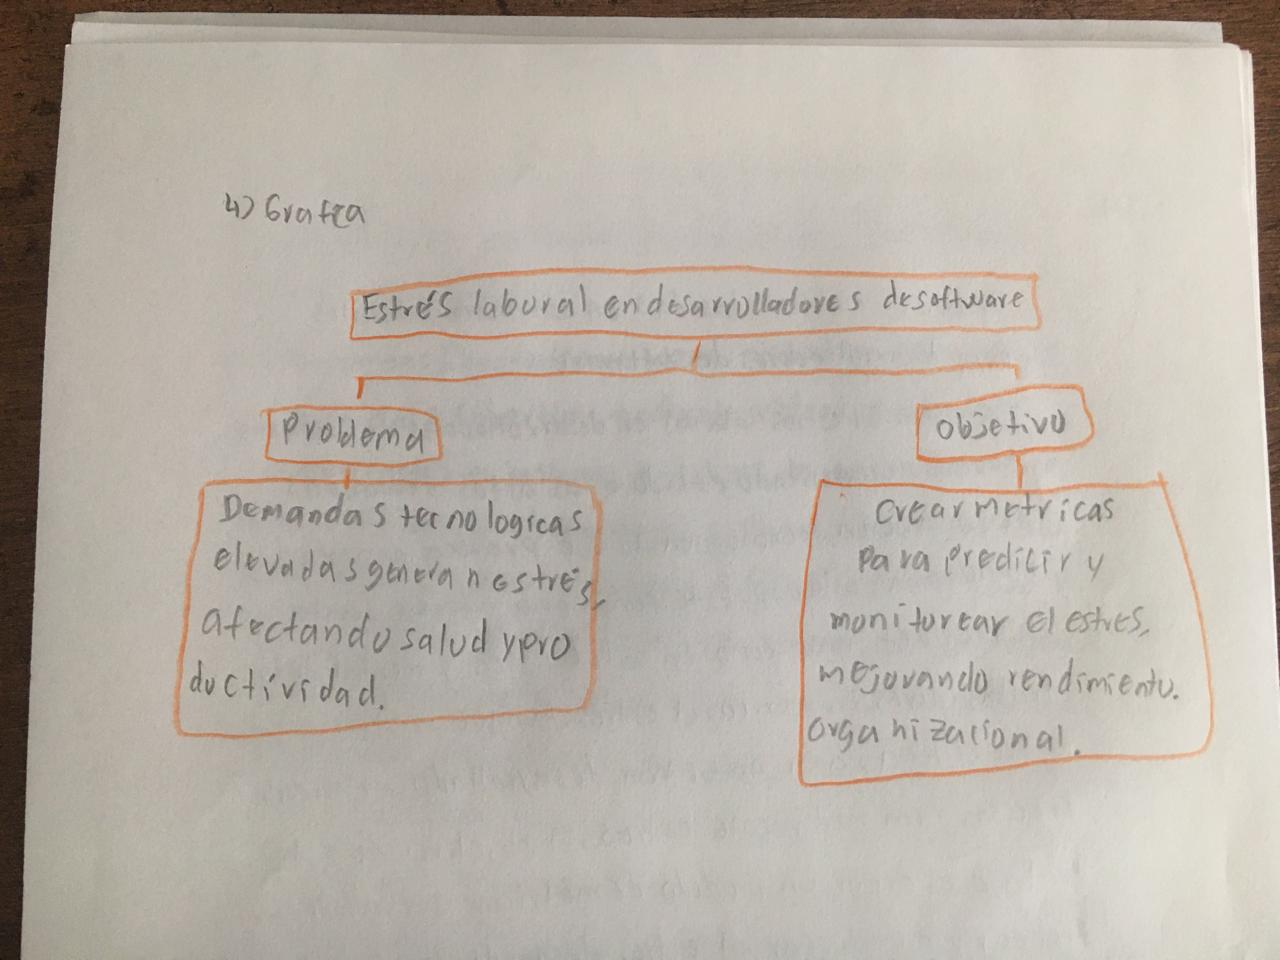 4) Grafca
Estrés laboral en desarrolladores de software
Problema
Objetivo
Demandas tecnologicas
elevadas generan estrés,
afectando salud y pro
ductividad.
crear metricas
para predicir y
monitorear el estres,
mejorando rendimiento.
organizacional.